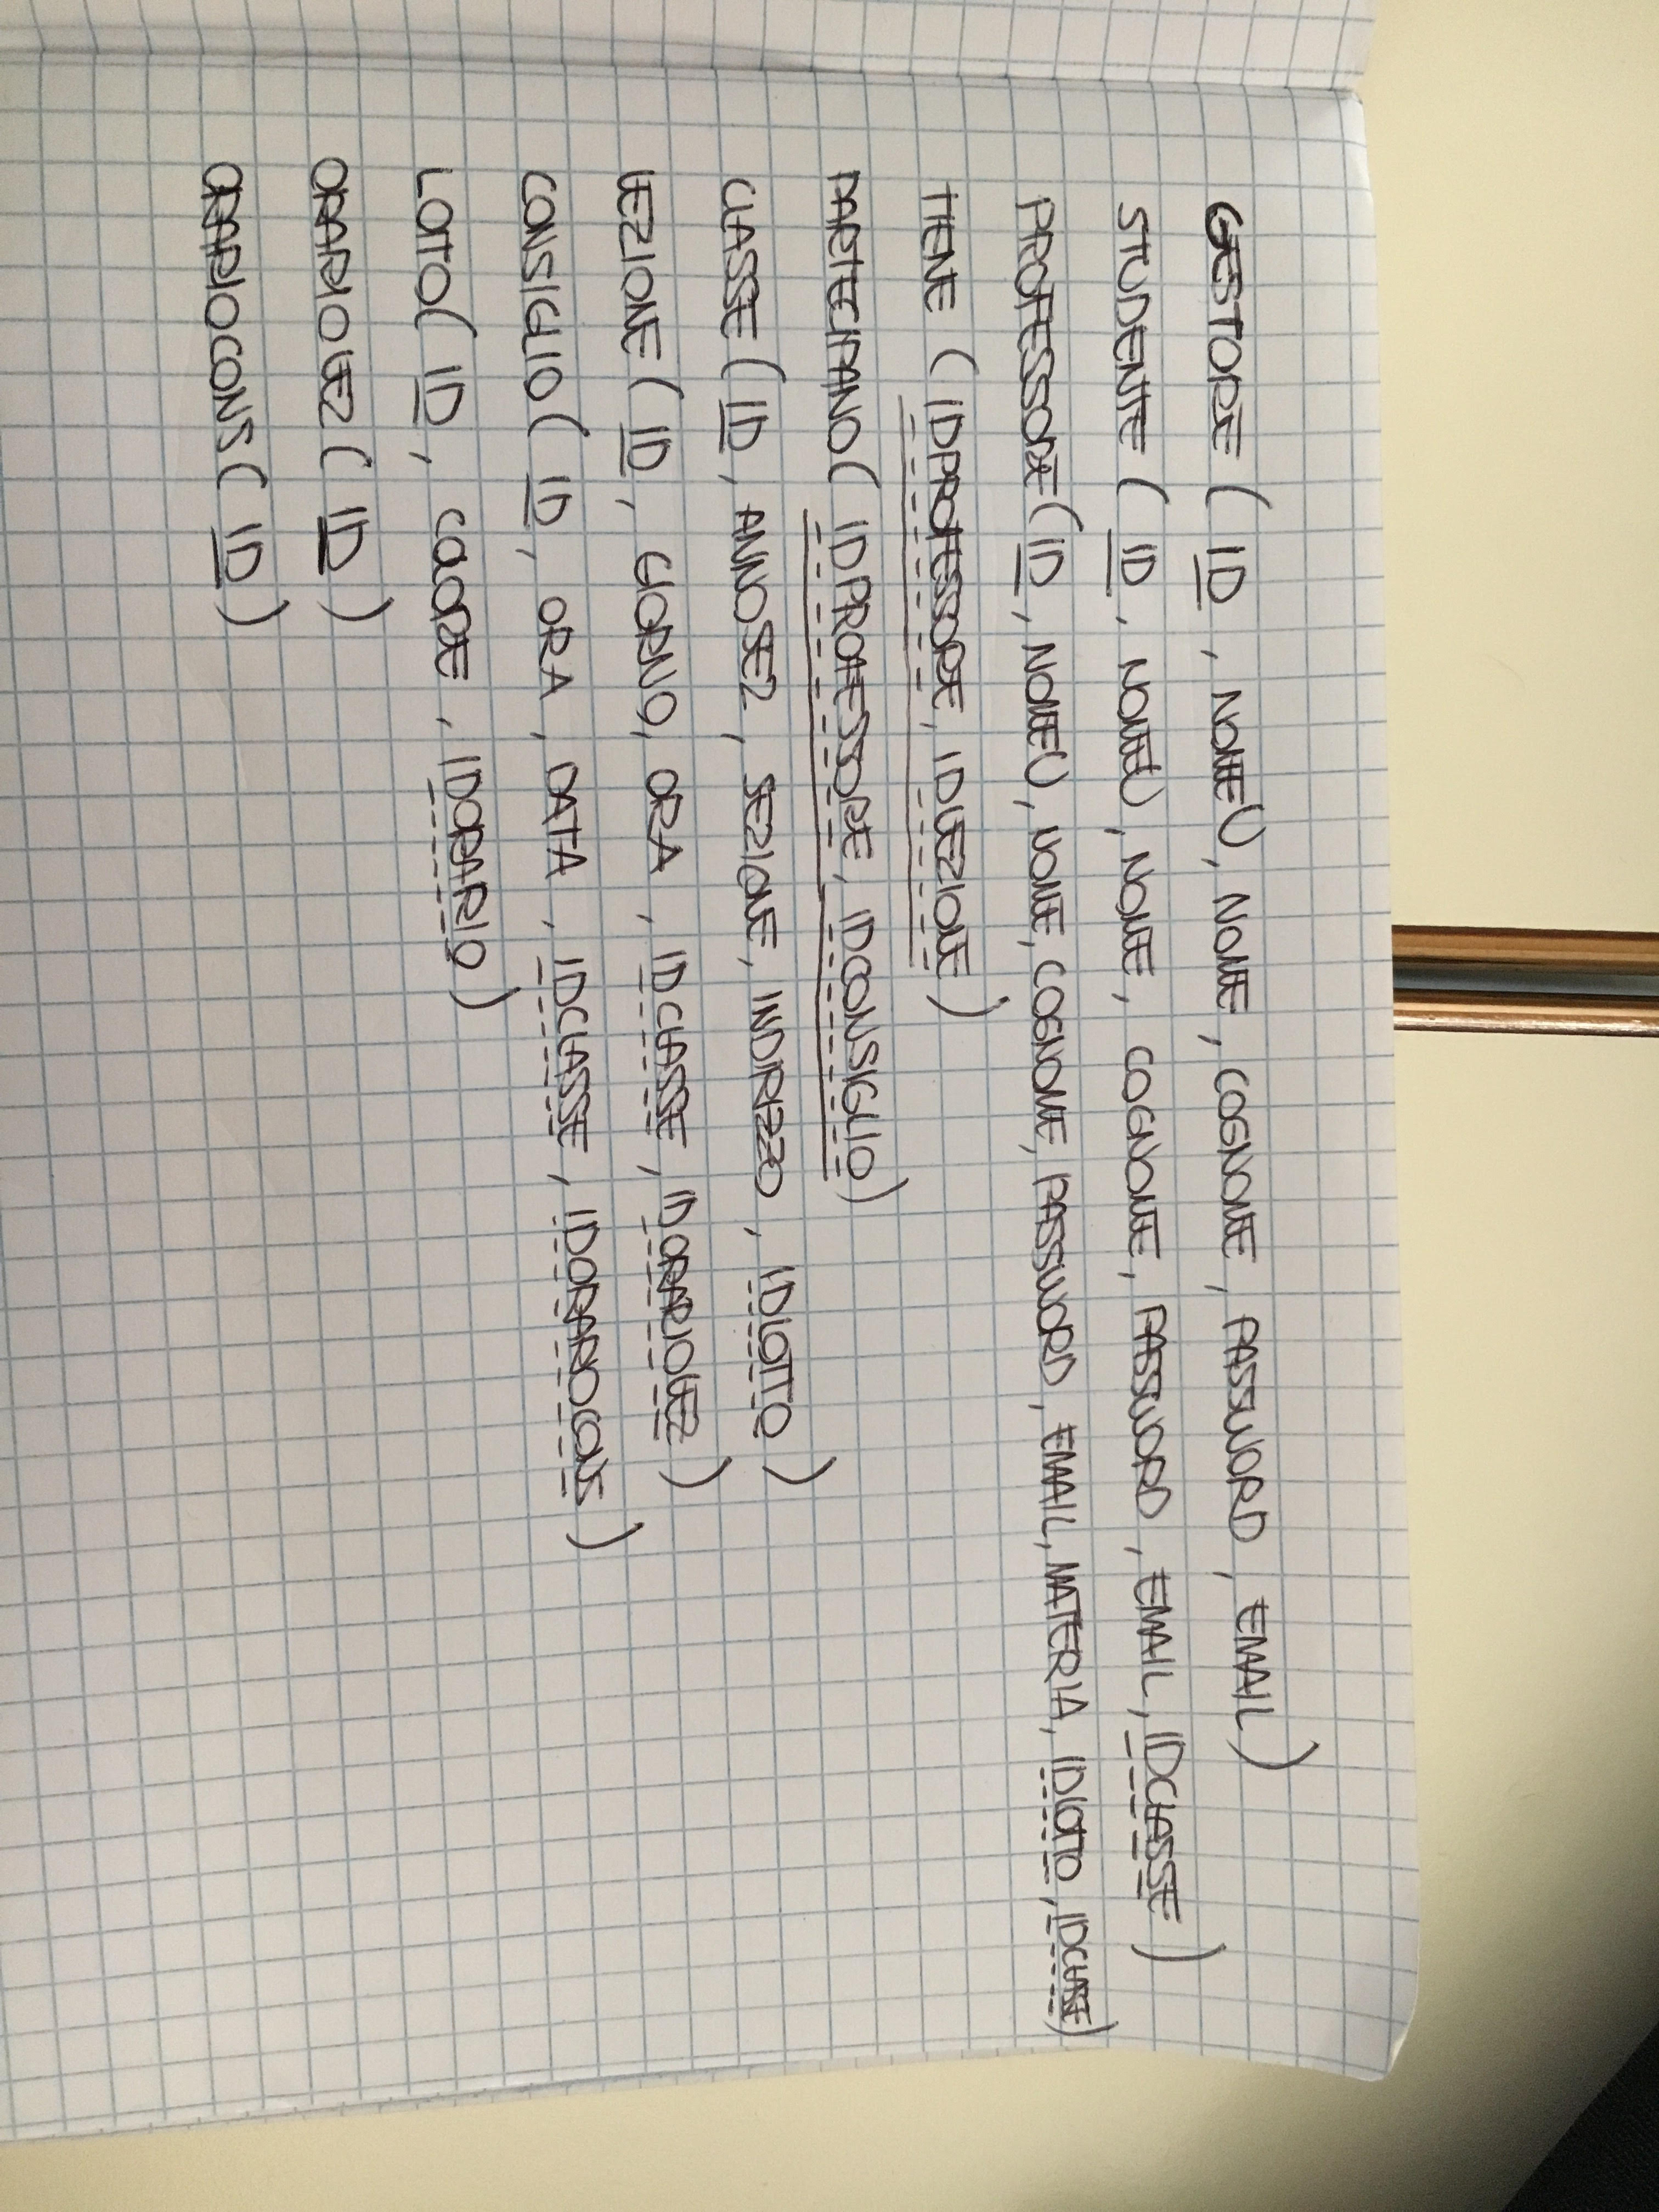 GESTORE ( ID , NOMEU , NOME , COGNOME , PASSWORD , EMAIL )
STUDENTE ( ID , NOMEU , NOME , COGNOME , PASSWORD , EMAIL , IDCLASSE )
PROFESSORE ( ID , NOMEU , NOME , COGNOME , PASSWORD , EMAIL , MATERIA , IDLOTTO , IDCLASSE )
TIENE ( IDPROFESSORE , IDLEZIONE )
PARTECIPANO ( IDPROFESSORE , IDCONSIGLIO )
CLASSE ( ID , ANNOSEZ , SEZIONE , INDIRIZZO , IDLOTTO )
LEZIONE ( ID , GIORNO , ORA , IDCLASSE , IDORARIOLEZ )
CONSIGLIO ( ID , ORA , DATA , IDCLASSE , IDORARIOCONS )
LOTTO ( ID , COLORE , IDORARIO )
ORARIOLEZ ( ID )
ORARIOCONS ( ID )